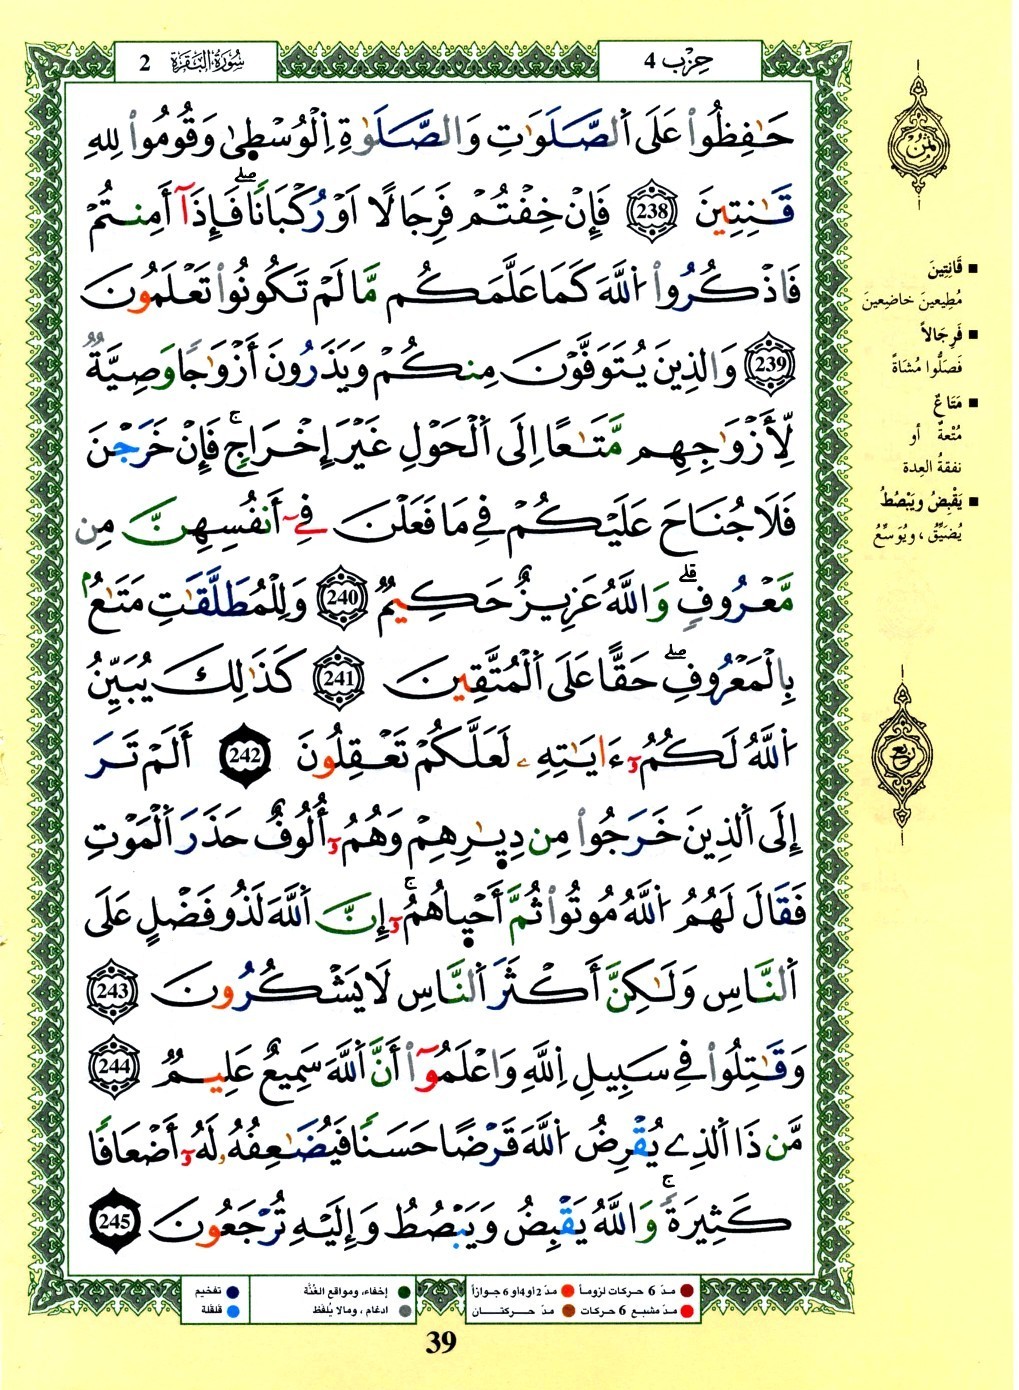 سُورَةُ البَقَرَة 2
حِزْب 4
حَٰفِظُواْ عَلَى اَ۬لصَّلَوَٰتِ وَالصَّلَوٰةِ اِ۬لْوُسْط۪يٰ وَقُومُواْ لِلهِ
قَٰنِتِينَ 238 فَإِنْ خِفْتُمْ فَرِجَالًا اَوْ رُكْبَانٗاۖ فَإِذَآ أَمِنتُمْ
فَاذْكُرُواْ اُ۬للَّهَ كَمَا عَلَّمَكُم مَّا لَمْ تَكُونُواْ تَعْلَمُونَ
239 وَالذِينَ يُتَوَفَّوْنَ مِنكُمْ وَيَذَرُونَ أَزْوَٰجٗا وَصِيَّةٞ
لِّأَزْوَٰجِهِم مَّتَٰعًا اِلَى اَ۬لْحَوْلِ غَيْرَ إِخْرَاجٖۚ فَإِنْ خَرَجْنَ
فَلَا جُنَاحَ عَلَيْكُمْ فِي مَا فَعَلْنَ فِيٓ أَنفُسِهِنَّ مِن
مَّعْرُوفٖۗ وَاللَّهُ عَزِيزٌ حَكِيمٞ 240 وَلِلْمُطَلَّقَٰتِ مَتَٰعُۢ
بِالْمَعْرُوفِۖ حَقًّا عَلَى اَ۬لْمُتَّقِينَ 241 كَذَٰلِكَ يُبَيِّنُ
اُ۬للَّهُ لَكُمُۥٓ ءَايَٰتِهِۦ لَعَلَّكُمْ تَعْقِلُونَ 242 أَلَمْ تَرَ
إِلَى اَ۬لذِينَ خَرَجُواْ مِن دِيٰ۪رِهِمْ وَهُمُۥٓ أُلُوفٌ حَذَرَ اَ۬لْمَوْتِ
فَقَالَ لَهُمُ اُ۬للَّهُ مُوتُواْ ثُمَّ أَحْي۪اهُمُۥٓۚ إِنَّ اَ۬للَّهَ لَذُو فَضْلٍ عَلَى
اَ۬لنَّاسِ وَلَٰكِنَّ أَكْثَرَ اَ۬لنَّاسِ لَا يَشْكُرُونَ 243
وَقَٰتِلُواْ فِي سَبِيلِ اِ۬للَّهِ وَاعْلَمُوٓاْ أَنَّ اَ۬للَّهَ سَمِيعٌ عَلِيمٞ 244
مَّن ذَا اَ۬لذِي يُقْرِضُ اُ۬للَّهَ قَرْضًا حَسَنٗا فَيُضَٰعِفُهُۥ لَهُۥٓ أَضْعَافٗا
كَثِيرَةٗۚ وَاللَّهُ يَقْبِضُ وَيَبْصُطُ وَإِلَيْهِ تُرْجَعُونَ 245
ثمن
■ قَانِتِينَ
مُطِيعينَ خاضِعينَ
■ فَرِجَالاً
فَصَلُّوا مُشَاةً
■ مَتَاعٌ
مُتْعةٌ أو
نفقةُ العِدة
■ يَقْبِضُ ويَبْصُطُ
يُضَيِّقُ ، ويُوَسِّعُ
ربع
مدّ 6 حركات لزوماً
مدّ 2 او4او 6 جوازاً
إخفاء، ومواقع الغُنَّة
تفخيم
مدّ مشبع 6 حركات
مدّ حركتان
ادغام ، ومالا يُلفظ
قلقلة
39